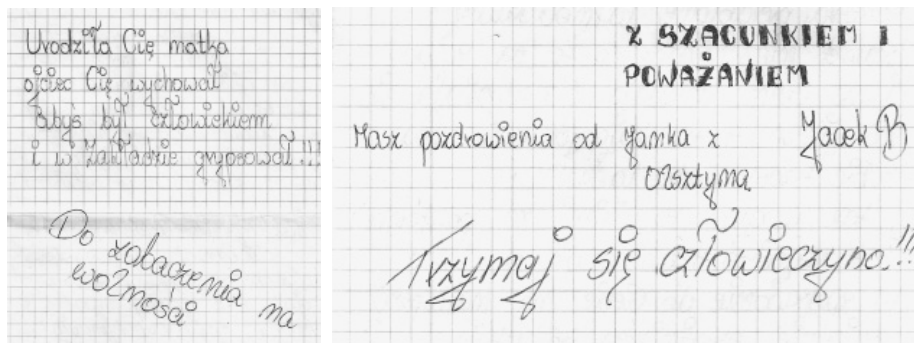 Urodziła Cię matka
ojciec Cię wychował
Abyś był człowiekiem
i w zakładzie grypsował!!!
Do zobaczenia na
wolności
Z SZACUNKIEM I
POWAŻANIEM
Masz pozdrowienia od Jamka z
Olsztyna
Jacek B
Trzymaj się człowieczyno!!!